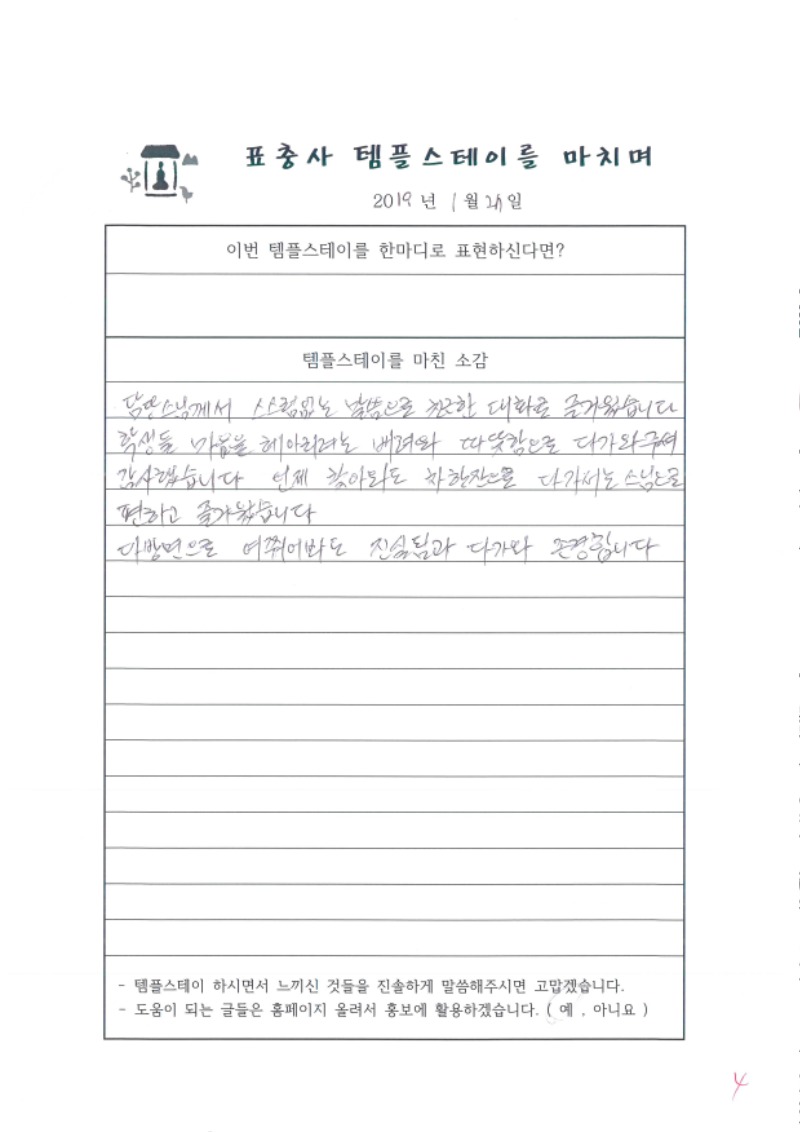 표충사 템플스테이를 마치며
2019 년 1 월 일
이번 템플스테이를 한마디로 표현하신다면?
템플스테이를 마친 소감
스님께서 스스럼없는 말씀으로 친근한 대화로 즐거웠습니다
학생들 마음을 헤아리려는 배려와 따뜻함으로 다가와주셔
감사했습니다 언제 찾아와도 차한잔으로 다가서는 스님으로
편하고 즐거웠습니다
다방면으로 여쭈어봐도 진실됨과 다가와 존경합니다
- 템플스테이 하시면서 느끼신 것들을 진솔하게 말씀해주시면 고맙겠습니다.
- 도움이 되는 글들은 홈페이지 올려서 홍보에 활용하겠습니다. ( 예 , 아니요 )
4